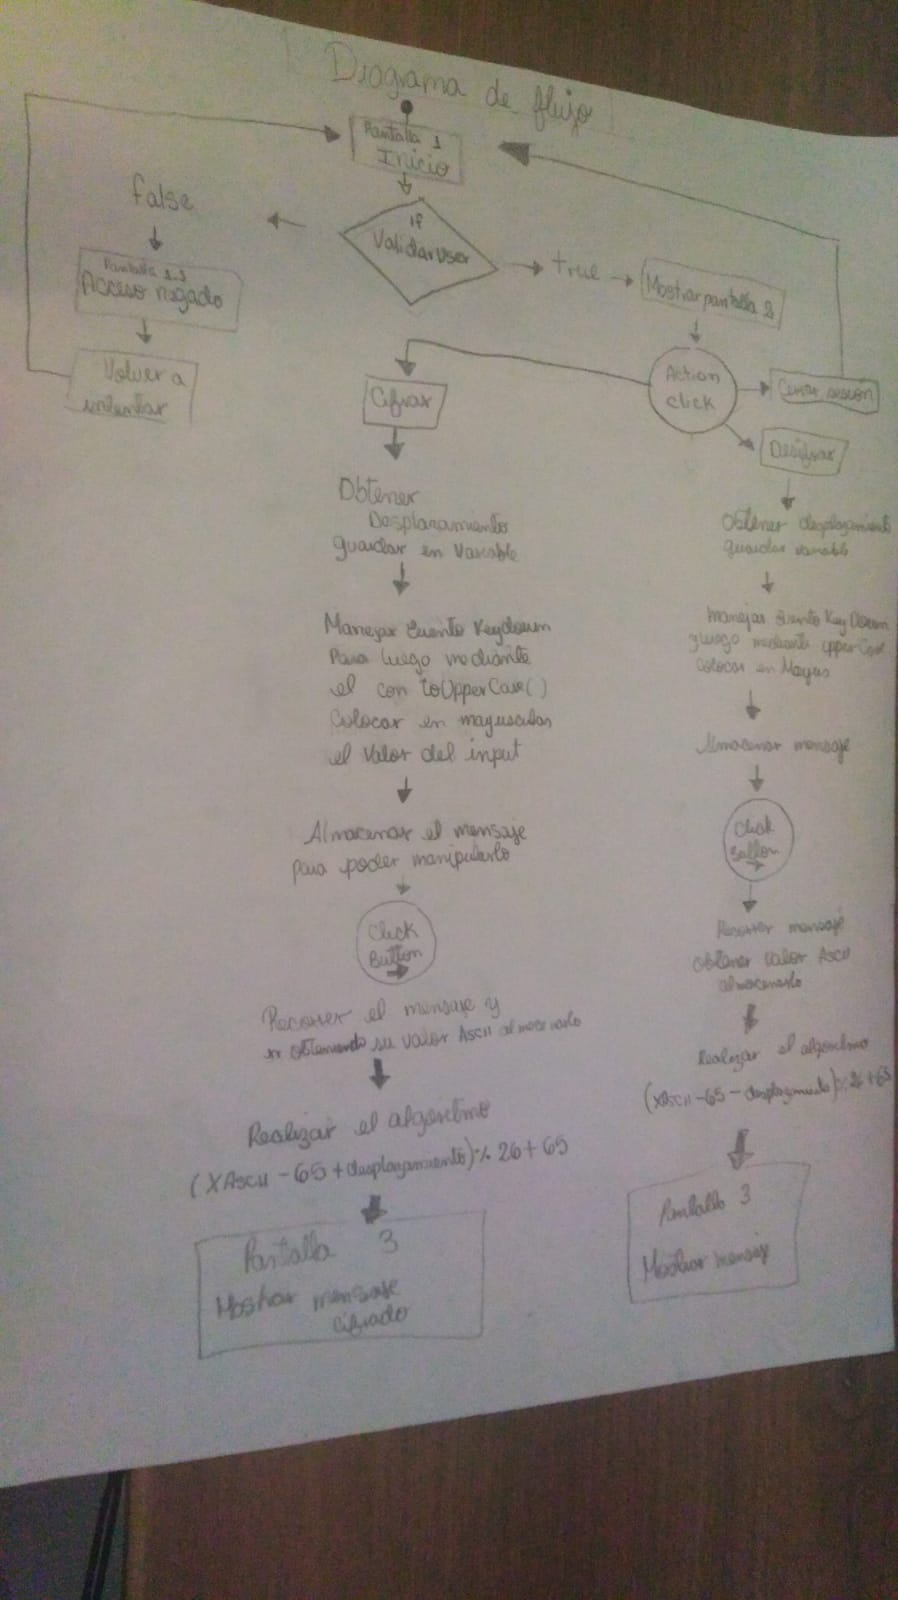 Diagrama de flujo
Pantalla 1
Inicio
if
Validar User
false
Pantalla 1.1
Acceso negado
Volver a
intentar
true
Mostrar pantalla 2
Action
click
Cerrar sesión
Cifrar
Obtener
Desplazamiento
guardar en Variable
Manejar Evento Keydown
Para luego mediante
el con toUpperCase()
Colocar en mayusculas
el Valor del input
Almacenar el mensaje
para poder manipularlo
Click
Button
Recorrer el mensaje y
obteniendo su valor Ascii almacenarlo
Realizar el algoritmo
(XAscii - 65 + desplazamiento) % 26 + 65
Pantalla 3
Mostrar mensaje
cifrado
Desifrar
Obtener desplazamiento
guardar variable
Manejar Evento Key Down
y luego mediante upperCase
colocar en Mayus
Almacenar mensaje
Click
Button
Recorrer mensaje
obtener valor Ascii
almacenarlo
Realizar el algoritmo
(XAscii - 65 - desplazamiento) % 26 + 65
Pantalla 3
Mostrar mensaje